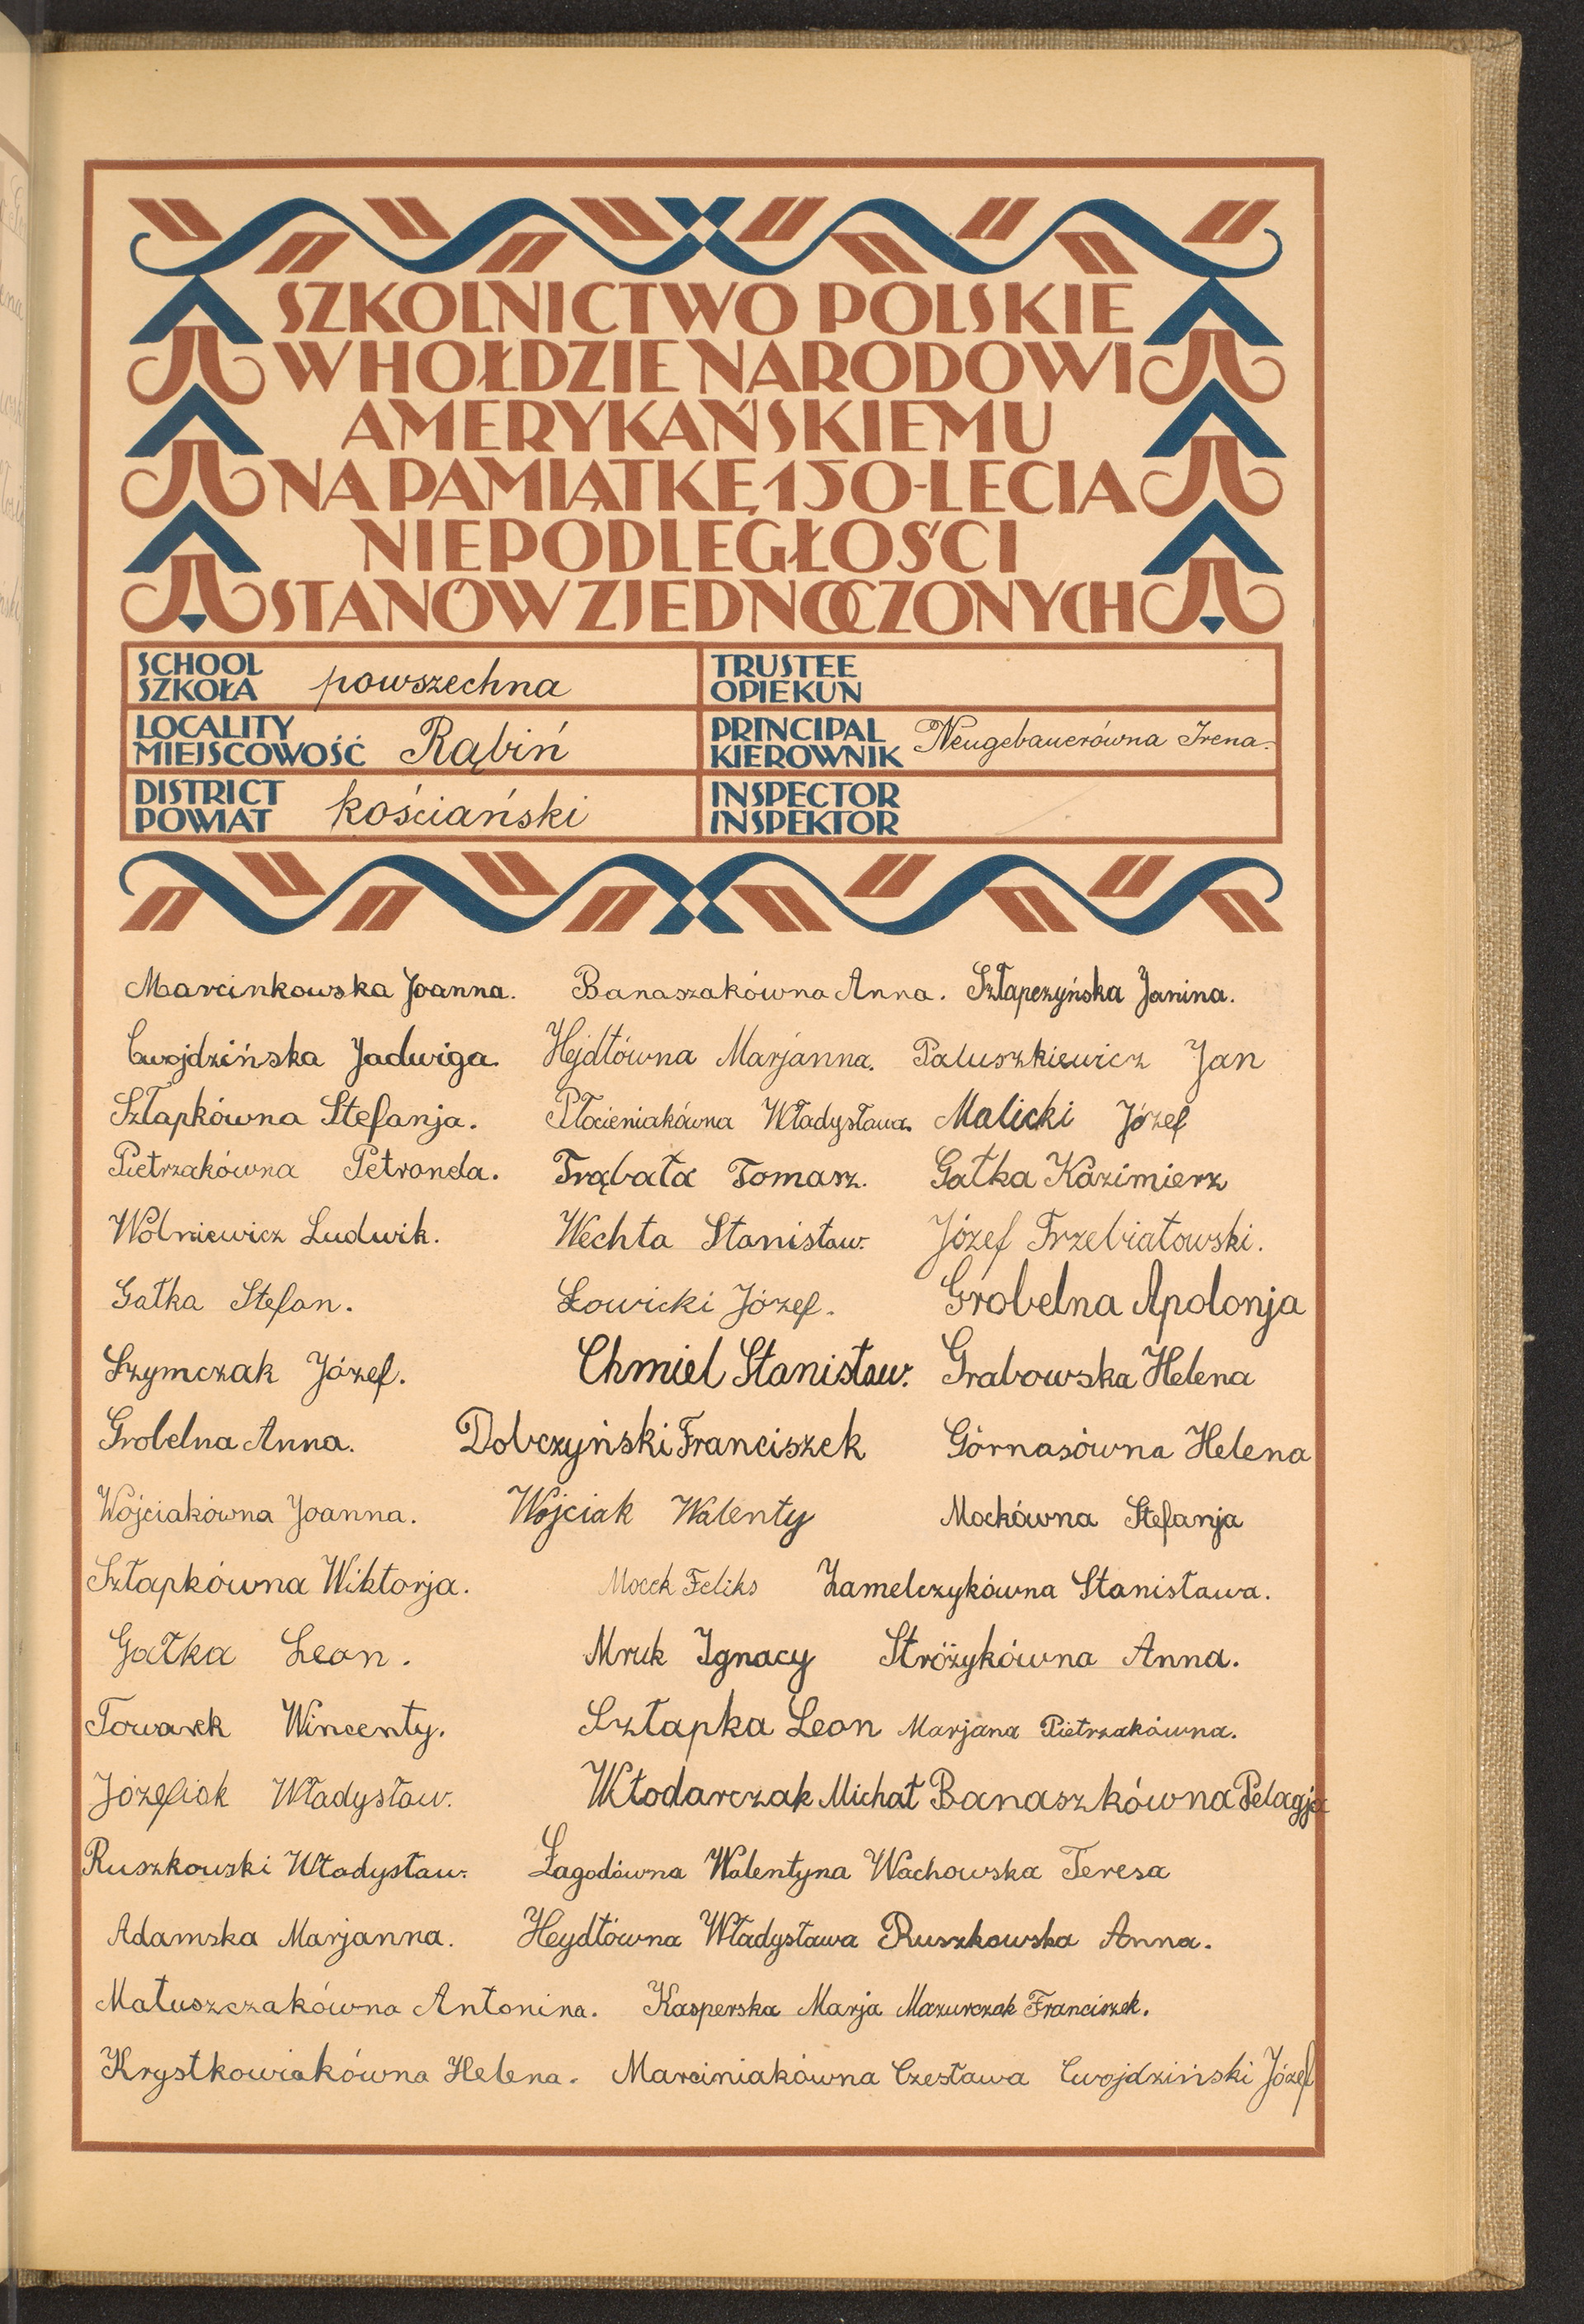 SZKOLNICTWO POLSKIE
W HOŁDZIE NARODOWI
AMERYKAŃSKIEMU
NA PAMIĄTKĘ 150-LECIA
NIEPODLEGŁOŚCI
STANÓW ZJEDNOCZONYCH
SCHOOL SZKOŁA powszechna TRUSTEE OPIEKUN
LOCALITY MIEJSCOWOŚĆ Rąbiń PRINCIPAL KIEROWNIK Neugebauerówna Irena.
DISTRICT POWIAT kościański INSPECTOR INSPEKTOR
Marcinkowska Joanna. Banaszakówna Anna. Szłapczyńska Janina.
Cwojdzińska Jadwiga. Hejdtówna Marjanna. Paluszkiewicz Jan
Szłapkówna Stefanja. Płócieniakówna Władysława. Malicki Józef
Pietrzakówna Petronela. Trąbała Tomasz. Gałka Kazimierz
Wolniewicz Ludwik. Wechta Stanisław. Józef Trzebiatowski.
Gałka Stefan. Łowicki Józef. Grobelna Apolonja
Szymczak Józef. Chmiel Stanisław. Grabowska Helena
Grobelna Anna. Dobczyński Franciszek Górnasówna Helena
Wójciakówna Joanna. Wojciak Walenty Mockówna Stefanja
Szłapkówna Wiktorja. Mocek Feliks Zamelczykówna Stanisława.
Gałka Leon. Mruk Ignacy Stróżykówna Anna.
Towarek Wincenty. Szłapka Leon Marjana Pietrzakówna.
Józefiak Władysław. Włodarczak Michał Banaszkówna Pelagja
Ruszkowski Władysław. Łagodówna Walentyna Wachowska Teresa
Adamska Marjanna. Heydtówna Władysława Ruszkowska Anna.
Matuszczakówna Antonina. Kasperska Marja Mazurczak Franciszek.
Krystkowiakówna Helena. Marciniakówna Czesława Cwojdziński Józef